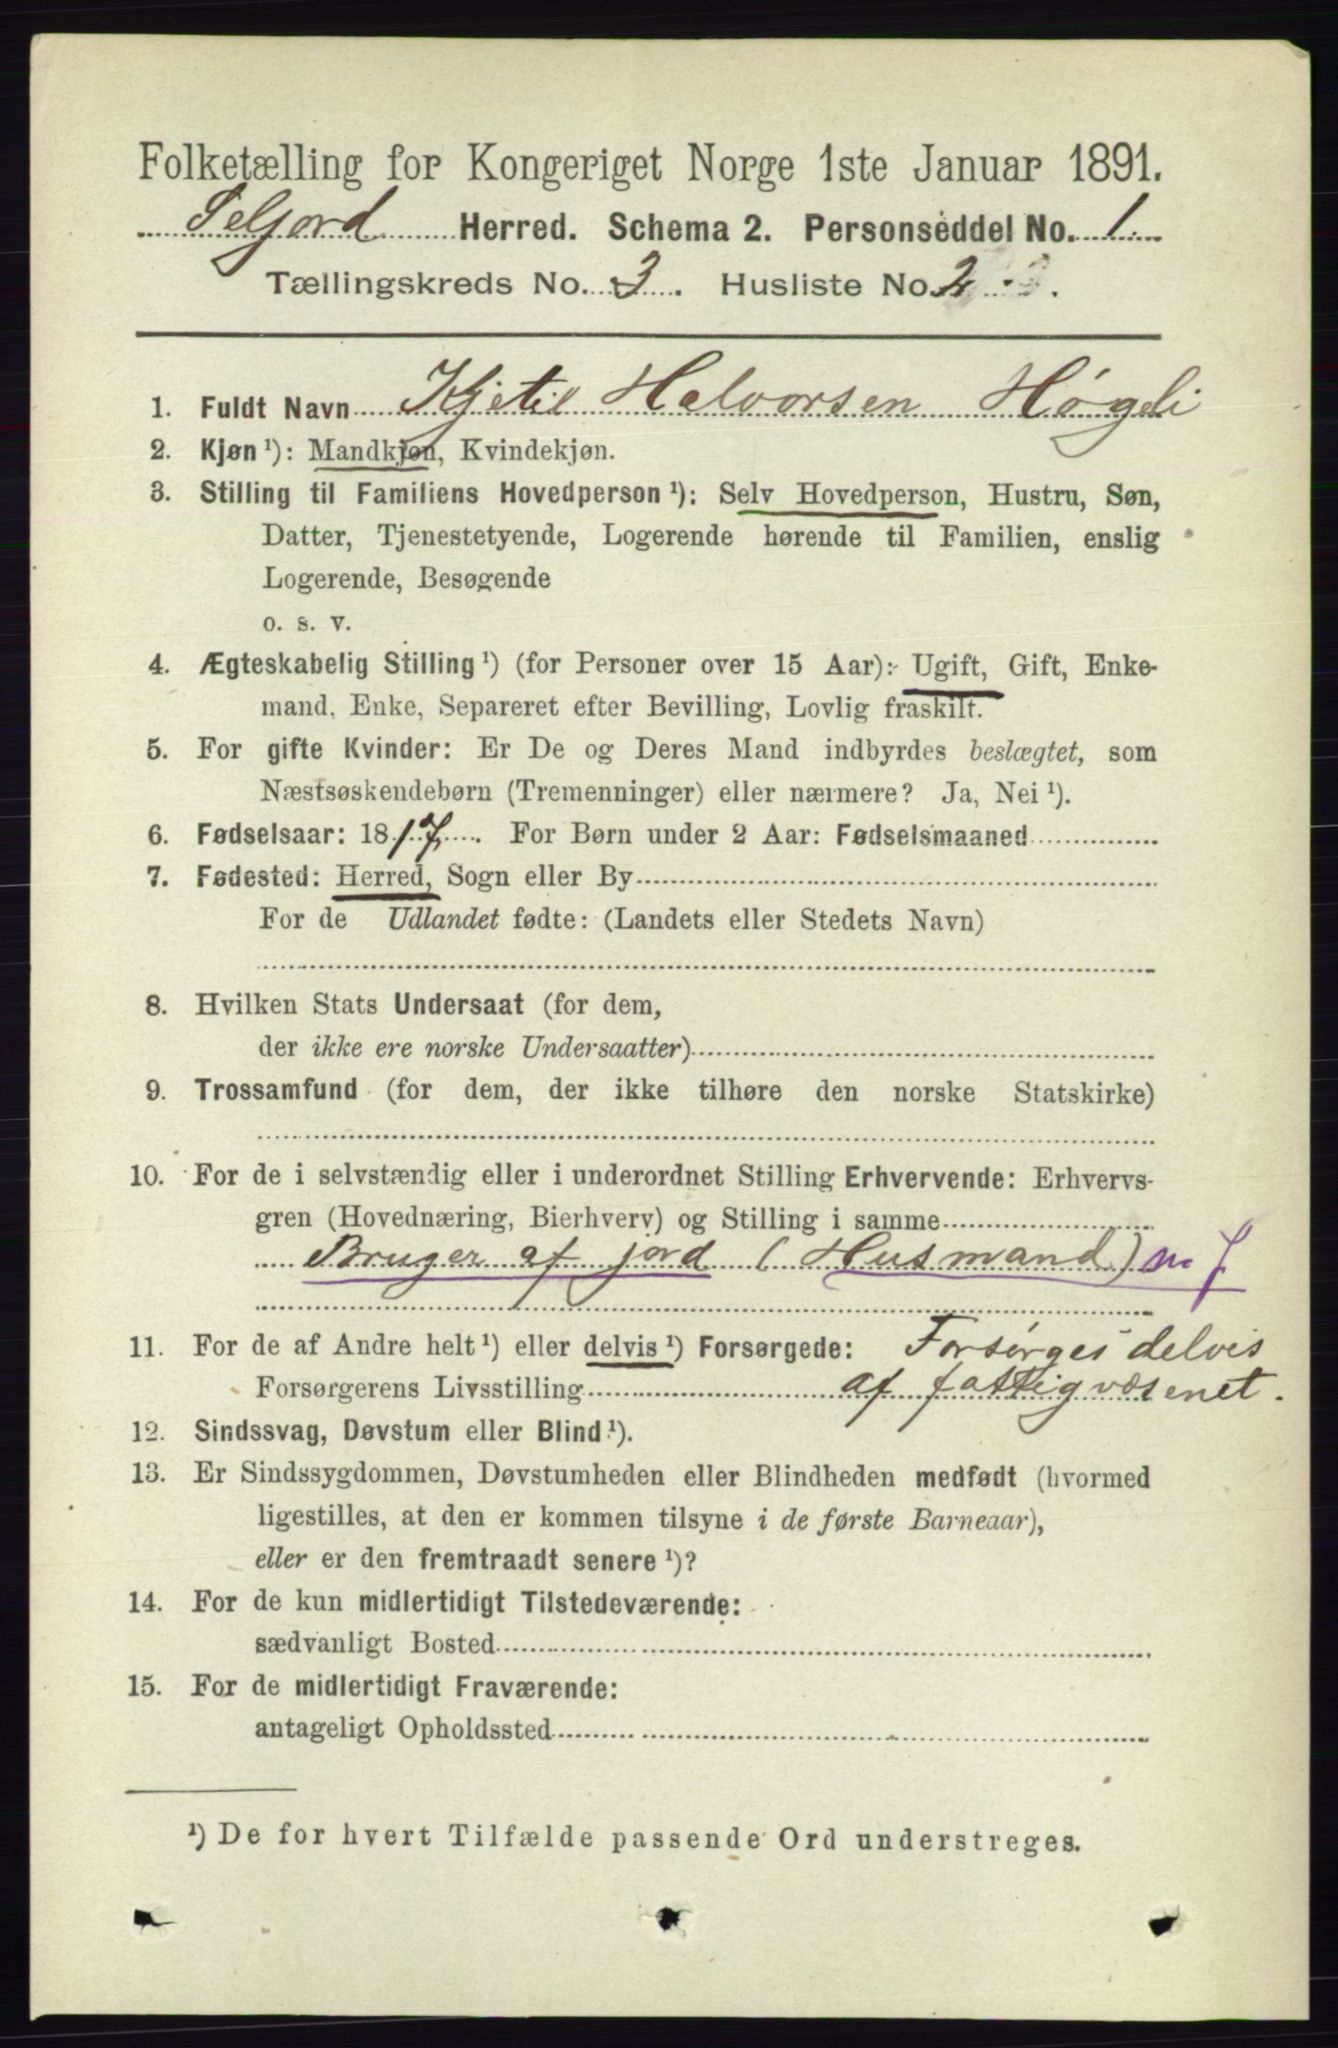 Folketælling for Kongeriget Norge 1ste Januar 1891.
Seljord Herred. Schema 2. Personseddel No. 1.
Tællingskreds No. 3. Husliste No. 2
1. Fuldt Navn Kjetil Halvorsen Høgeli
2. Kjøn ¹): Mandkjøn, Kvindekjøn.
3. Stilling til Familiens Hovedperson ¹): Selv Hovedperson, Hustru, Søn,
Datter, Tjenestetyende, Logerende hørende til Familien, enslig
Logerende, Besøgende
o. s. v.
4. Ægteskabelig Stilling ¹) (for Personer over 15 Aar): Ugift, Gift, Enke-
mand, Enke, Separeret efter Bevilling, Lovlig fraskilt.
5. For gifte Kvinder: Er De og Deres Mand indbyrdes beslægtet, som
Næstsøskendebørn (Tremenninger) eller nærmere? Ja, Nei ¹).
6. Fødselsaar: 1817. For Børn under 2 Aar: Fødselsmaaned
7. Fødested: Herred, Sogn eller By
For de Udlandet fødte: (Landets eller Stedets Navn)
8. Hvilken Stats Undersaat (for dem,
der ikke ere norske Undersaatter)
9. Trossamfund (for dem, der ikke tilhøre den norske Statskirke)
10. For de i selvstændig eller i underordnet Stilling Erhvervende: Erhvervs-
gren (Hovednæring, Bierhverv) og Stilling i samme
Bruger af jord (Husmand) m J
11. For de af Andre helt ¹) eller delvis ¹) Forsørgede: Forsørges delvis
Forsørgerens Livsstilling af fattigvæsenet.
12. Sindssvag, Døvstum eller Blind ¹).
13. Er Sindssygdommen, Døvstumheden eller Blindheden medfødt (hvormed
ligestilles, at den er kommen tilsyne i de første Barneaar),
eller er den fremtraadt senere ¹)?
14. For de kun midlertidigt Tilstedeværende:
sædvanligt Bosted
15. For de midlertidigt Fraværende:
antageligt Opholdssted
¹) De for hvert Tilfælde passende Ord understreges.